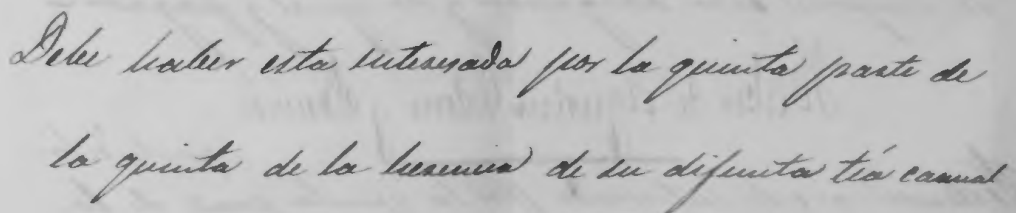 Debe haber esta interesada por la quinta parte de
la quinta de la herencia de su difunta tía carnal